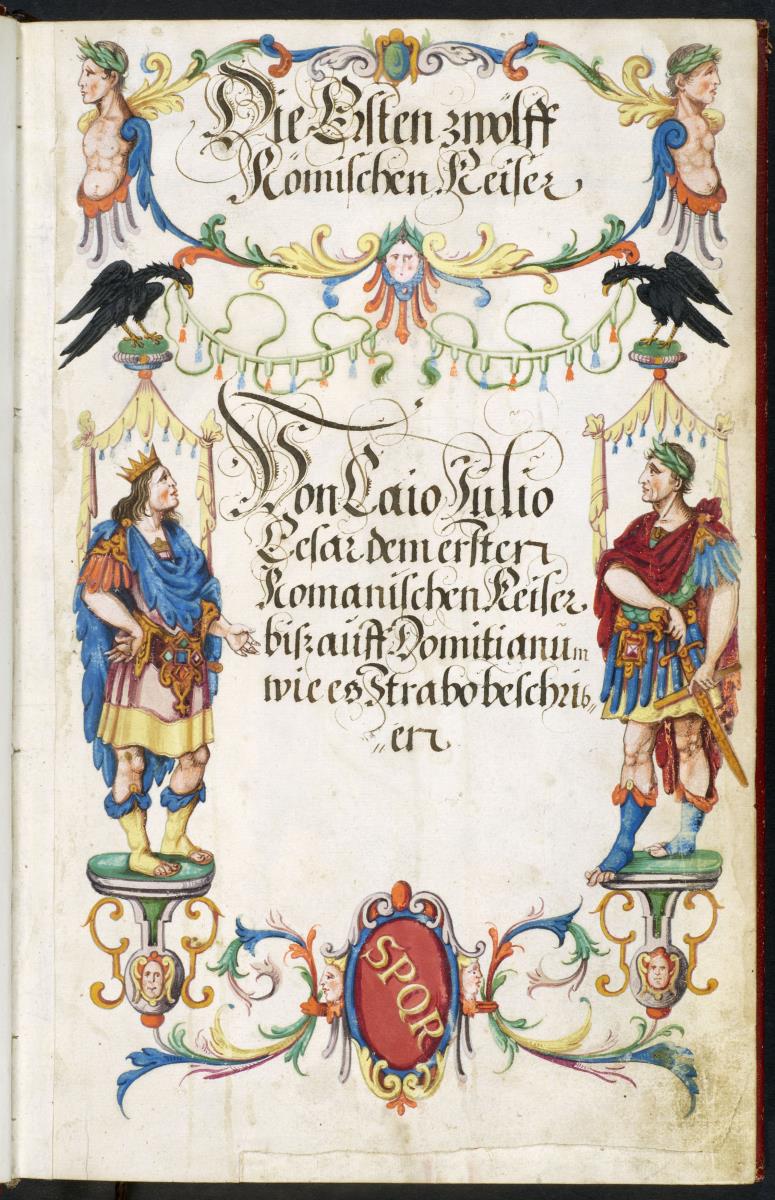 Die Ersten zwölff
Römischen Keiser
Von Caio Julio
Cesar dem ersten
Romanischen Keiser
biß auff Domitianum
wie es Strabo beschrib„
„en
SPQR